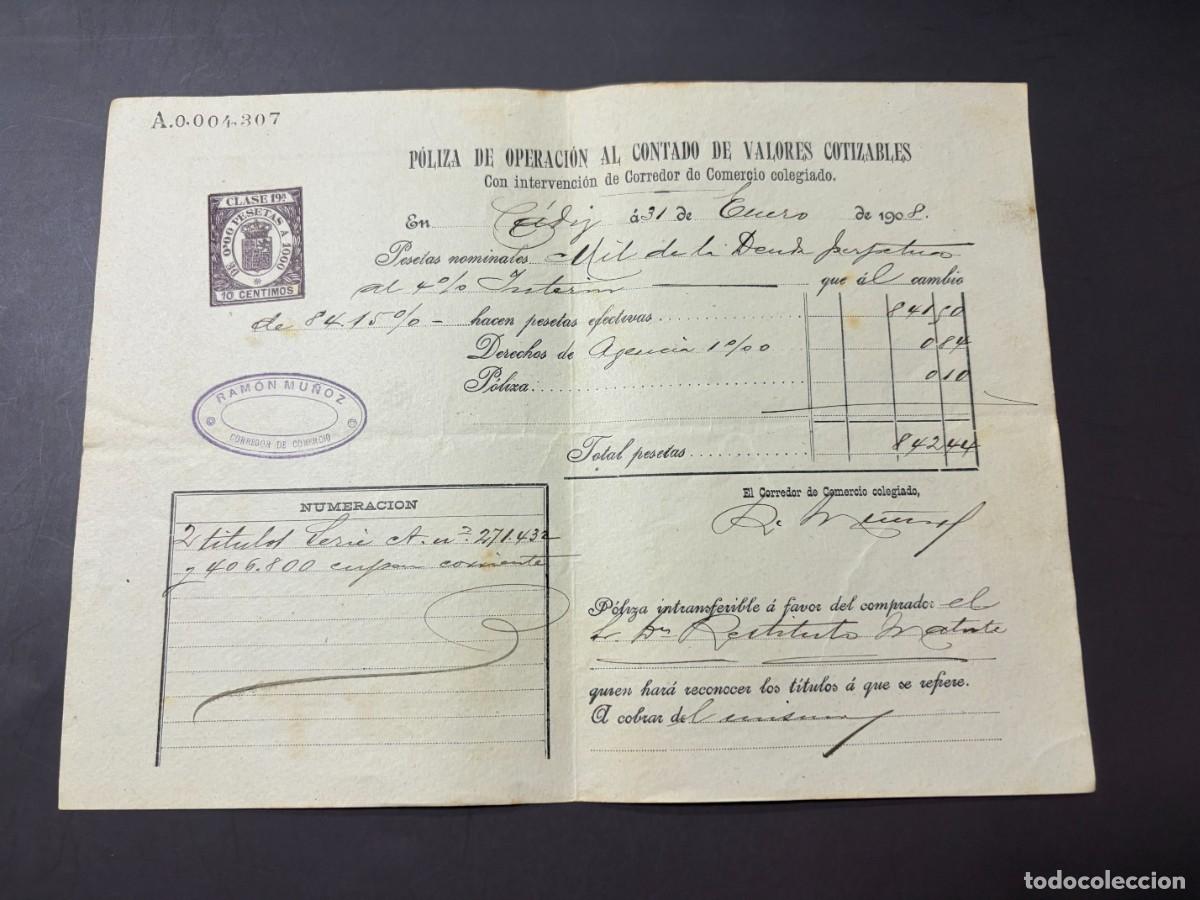 A.0.004.307
PÓLIZA DE OPERACIÓN AL CONTADO DE VALORES COTIZABLES
Con intervención de Corredor de Comercio colegiado.
CLASE 19ª
DE 0'00 PESETAS A 1000
10 CENTIMOS
En Cádiz á 31 de Enero de 1908.
Pesetas nominales Mil de la Deuda perpetua
al 4% Interior que ál cambio
de 84.15% - hacen pesetas efectivas 841 50
Derechos de Agencia 1º/00 0 84
Póliza: 0 10
Total pesetas 842 44
RAMÓN MUÑOZ
CORREDOR DE COMERCIO
El Corredor de Comercio colegiado,
R. Muñoz
NUMERACION
2 titulos Serie A. nº 271.432
y 406.800 cupon corriente
Póliza intransferible á favor del comprador el
Sr. Dn Restituto Matute
quien hará reconocer los títulos á que se refiere.
A cobrar del mismo
todocoleccion